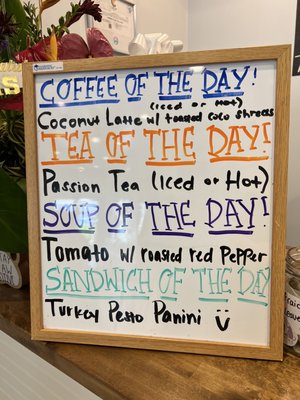 COFFEE OF THE DAY!
(iced or Hot)
Coconut Latte w/ toasted coco shreds
TEA OF THE DAY!
Passion Tea (Iced or Hot)
SOUP OF THE DAY!
Tomato w/ roasted red Pepper
SANDWICH OF THE DAY
Turkey Pesto Panini